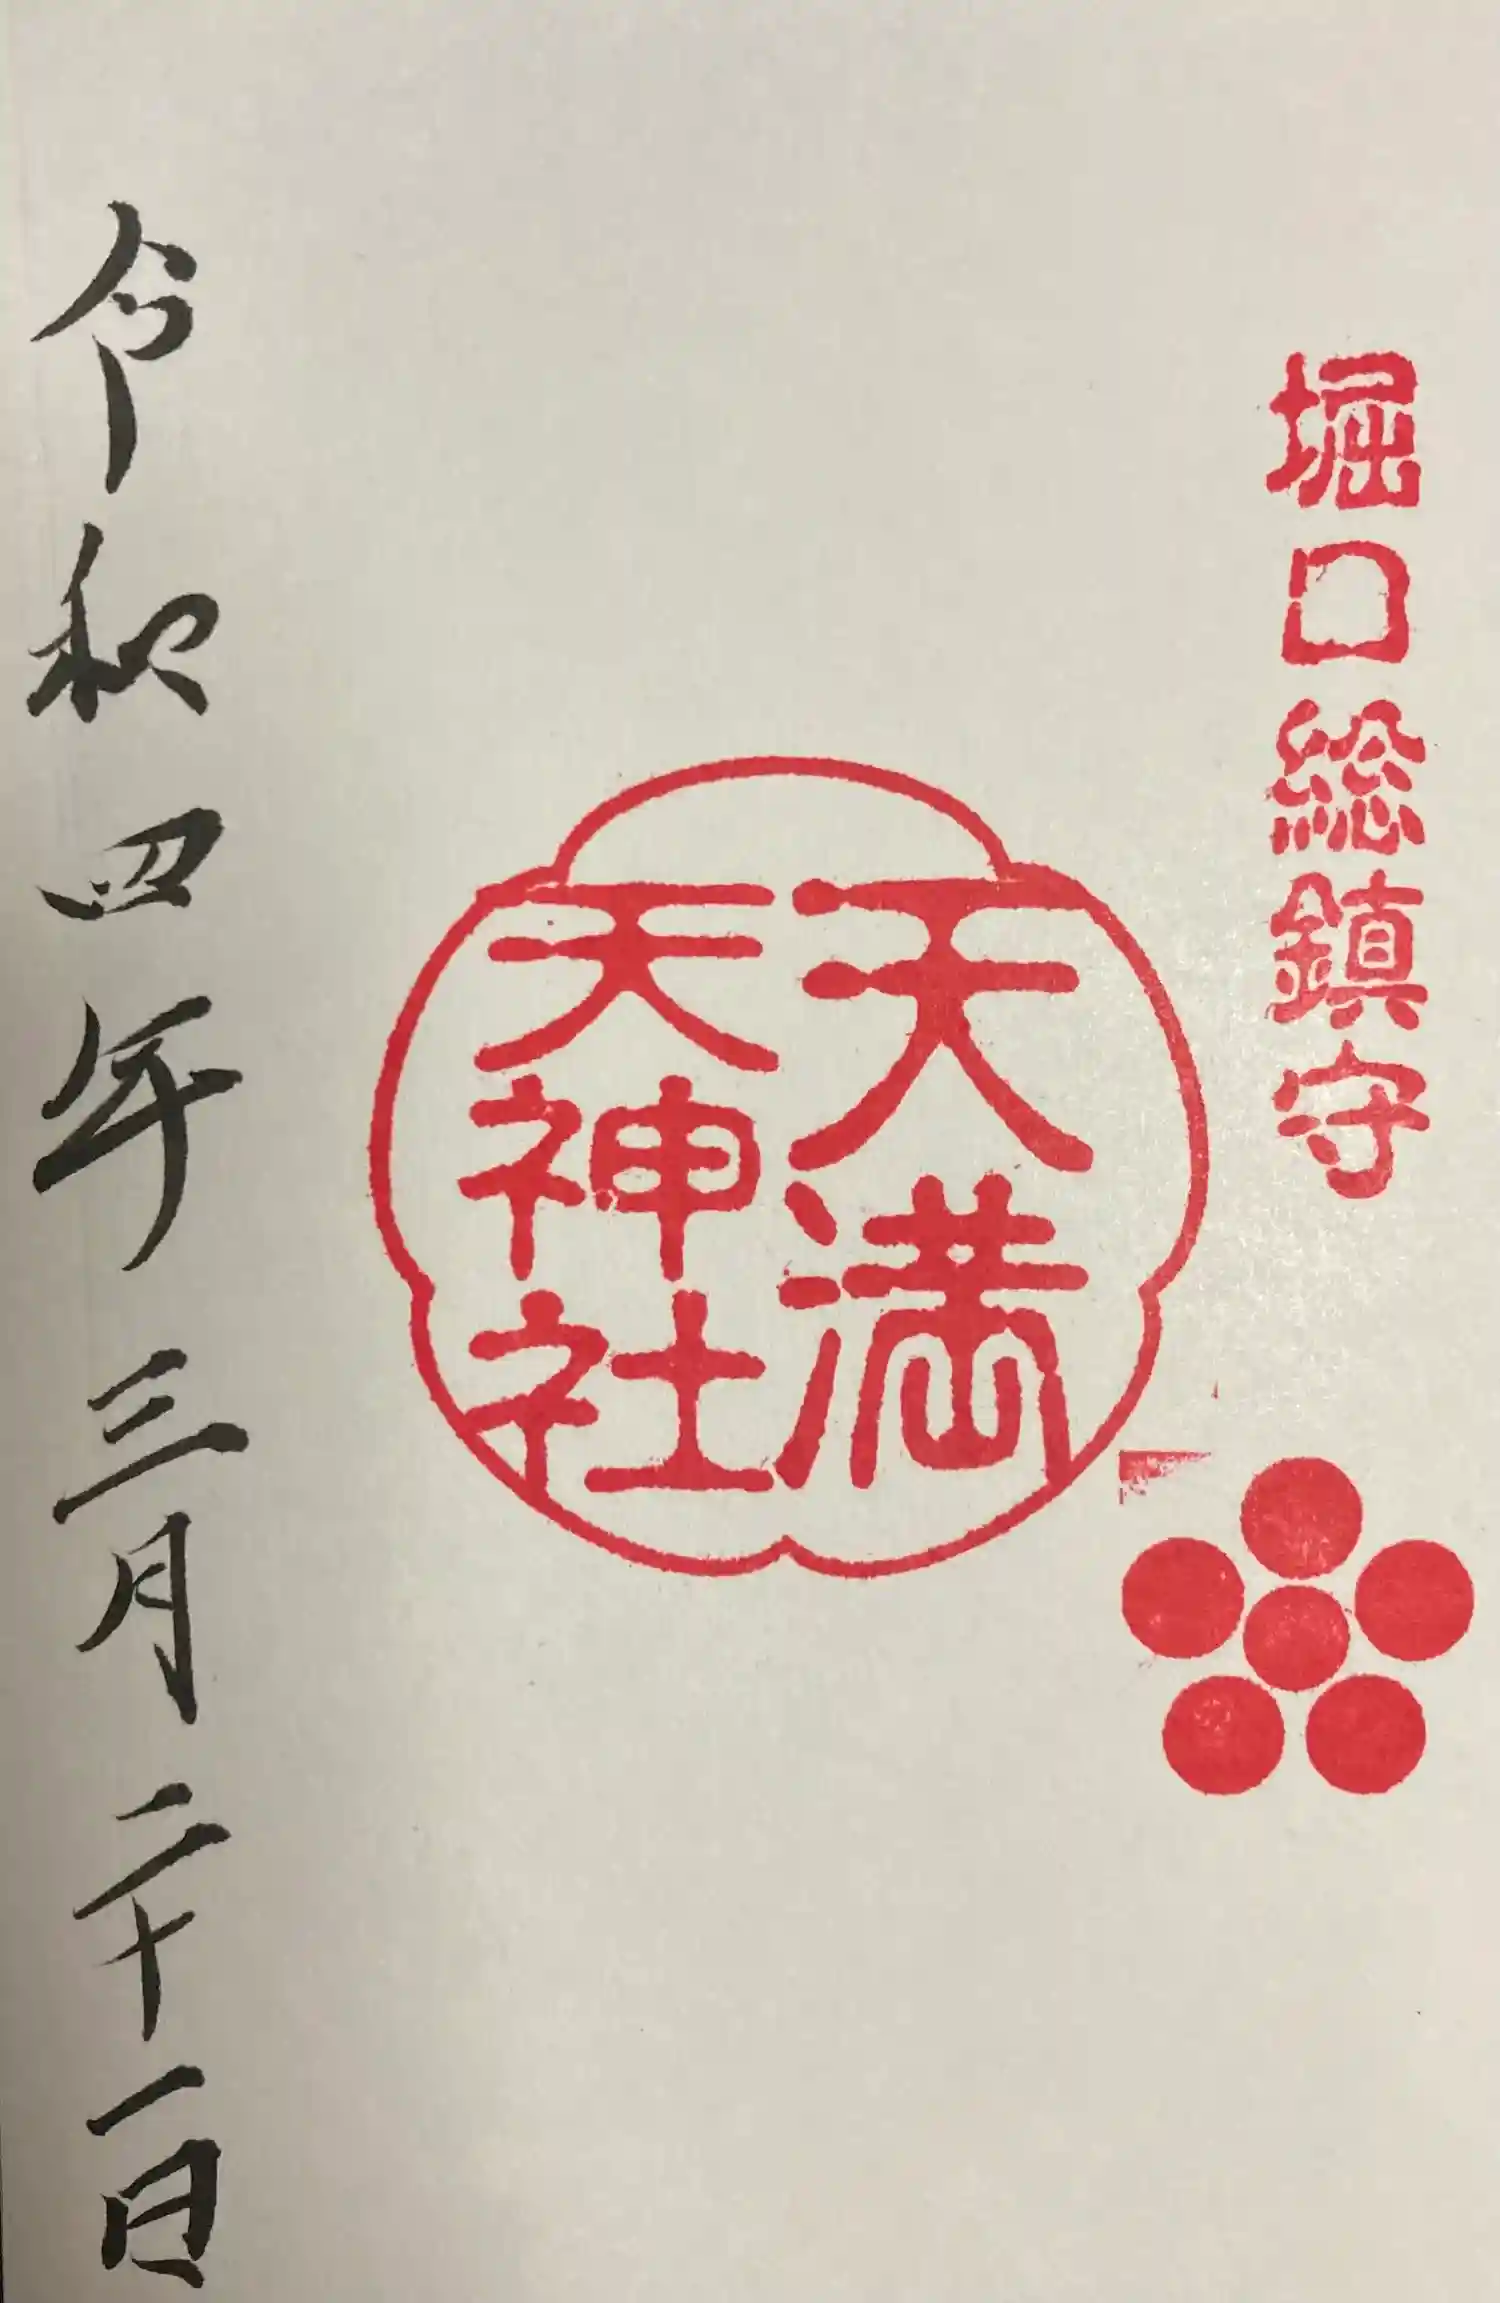 堀口総鎮守
天満
天神社
令和四年三月二十一日